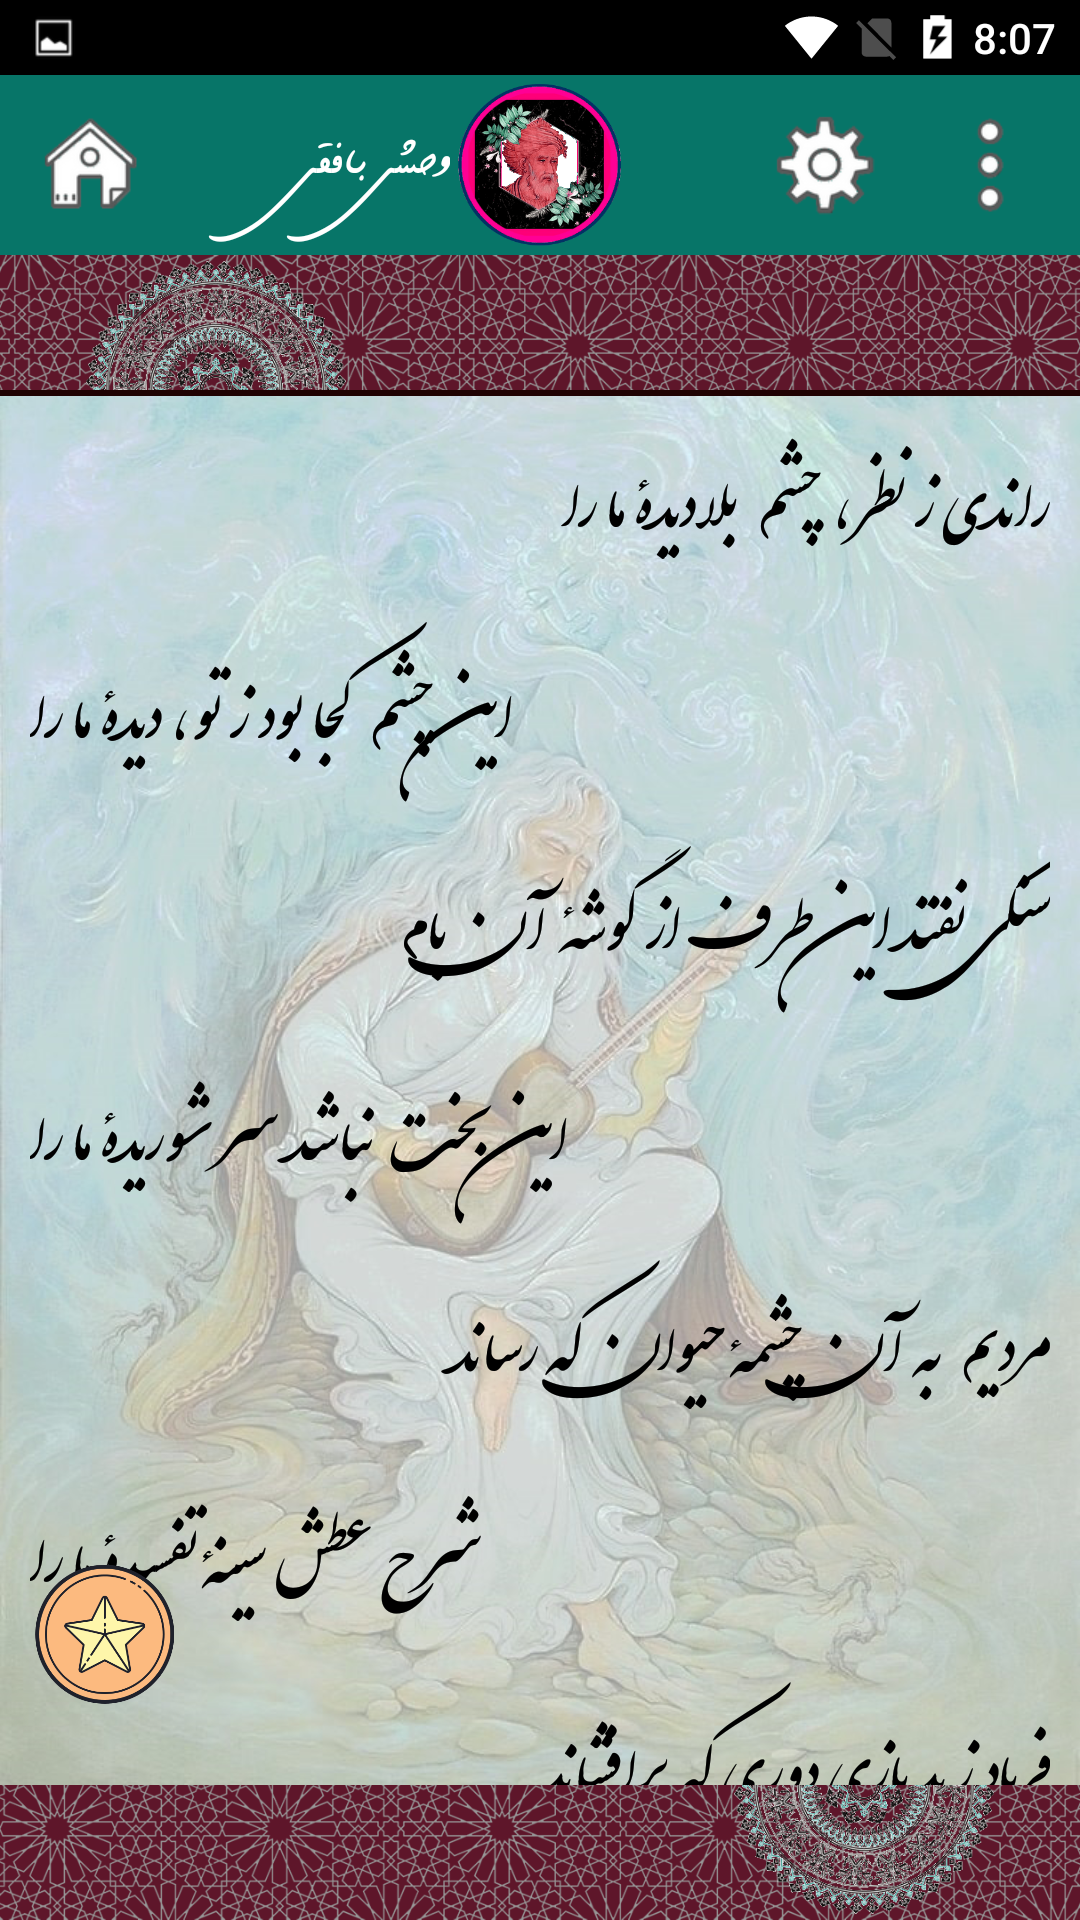 8:07
وحشی بافقی
راندی ز نظر، چشم بلا دیدهٔ ما را
این چشم کجا بود ز تو، دیدهٔ ما را
سنگی نفتد این طرف از گوشهٔ آن بام
این بخت نباشد سر شوریدهٔ ما را
مردیم به آن چشمهٔ حیوان که رساند
شرح عطش سینهٔ تفسیدهٔ ما را
فریاد ز بد بازی دوری که برافشاند